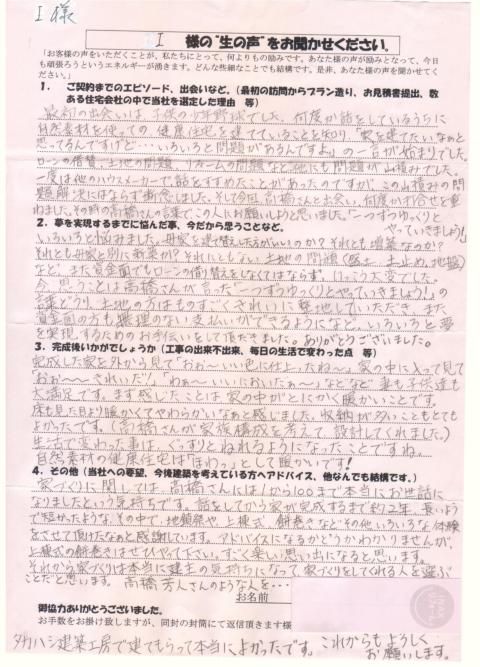 I 様
I 様の"生の声"をお聞かせください。
「お客様の声をいただくことが、私たちにとって、何よりもの励みです。あなた様の声が励みとなって、今日
も頑張ろうというエネルギーが湧きます。どんな些細なことでも結構です。是非、あなた様の声を聞かせてく
ださい。」
1. ご契約までのエピソード、出会いなど。(最初の訪問からプラン造り、お見積書提出、数
ある住宅会社の中で当社を選定した理由 等)
最初の出会いは、子供の少年野球でした。何度か話をしているうちに
自然素材を使っての健康住宅を建てていることを知り、「家を建てたいなぁと
思ってるんですけど…いろいろと問題があるんですよ。」の一言が始まりでした。
ローンの借替、土地の問題、リフォームの問題など他にも問題が山積みでした。
一度は他のハウスメーカーで話をすすめたことがあったのですが、この山積みの問
題解決にはならず断念しました。そして今回高橋さんと出会い、何度か打合せを重
ねました。その時の高橋さんの言葉で、この人にお願いしようと思いました。「一つずつゆっくりと
やっていきましょう!」
2. 夢を実現するまでに悩んだ事、今だから思うことなど。
いろいろと悩みました。母家を建て替えした方がいいのか?それとも増築なのか?
それとも母家と別に新築か?それにともない土地の問題(盛土、土止め、地盤)
など、また資金面でもローンの借り替えをしなくてはならず、けっこう大変でした。
今、思うことは高橋さんが言った「一つずつゆっくりとやっていきましょう!」の
言葉どうり、土地の方はものすごくきれいに整地していただき、また
資金面の方も無理のない支払いができるようになど、いろいろと夢
を実現するためのお手伝いをして頂きました。ありがとうございました。
3. 完成後いかがでしょうか(工事の出来不出来、毎日の生活で変わった点 等)
完成した家を外から見て「おぉ〜いい色に仕上ったね〜。家の中に入って見て
おぉ〜〜きれいだ!」「わぁ〜いいにおいだぁ〜」などなど妻も子供達も
大満足です。まず感じたことは家の中がとにかく暖かいことです。
床も見た目より暖かくてやわらかいなぁと感じました。収納が多いこともとても
よかったです。(高橋さんが家族構成を考えて設計してくれました。)
生活で変わった事は、ぐっすりとねれるようになったことですね。
自然素材の健康住宅は「ほわっ」として暖かいです!
4. その他(当社への要望、今後建築を考えている方へアドバイス、他なんでも結構です。)
家づくりに関しては、高橋さんには1から100まで本当にお世話に
なりましたという気持ちです。話をしてから家が完成するまで約2年、長いよう
で短かったような、その中で、地鎮祭や上棟式、餅巻きなどその他いろいろな体験
をさせて頂けたなぁと感謝しています。アドバイスになるかどうかわかりませんが、
上棟式の餅巻きはぜひやって下さい。すごく楽しい思い出になると思います。
それから家づくりは本当に建主の気持ちになって、家づくりをしてくれる人を選ぶ
ことだと思います。高橋芳人さんのような人を・・・
お名前
御協力ありがとうございました。
お手数をお掛け致しますが、同封の封筒にて返信頂きます様
タカハシ建築工房で建てもらって本当によかったです。これからもよろしく
お願いします。